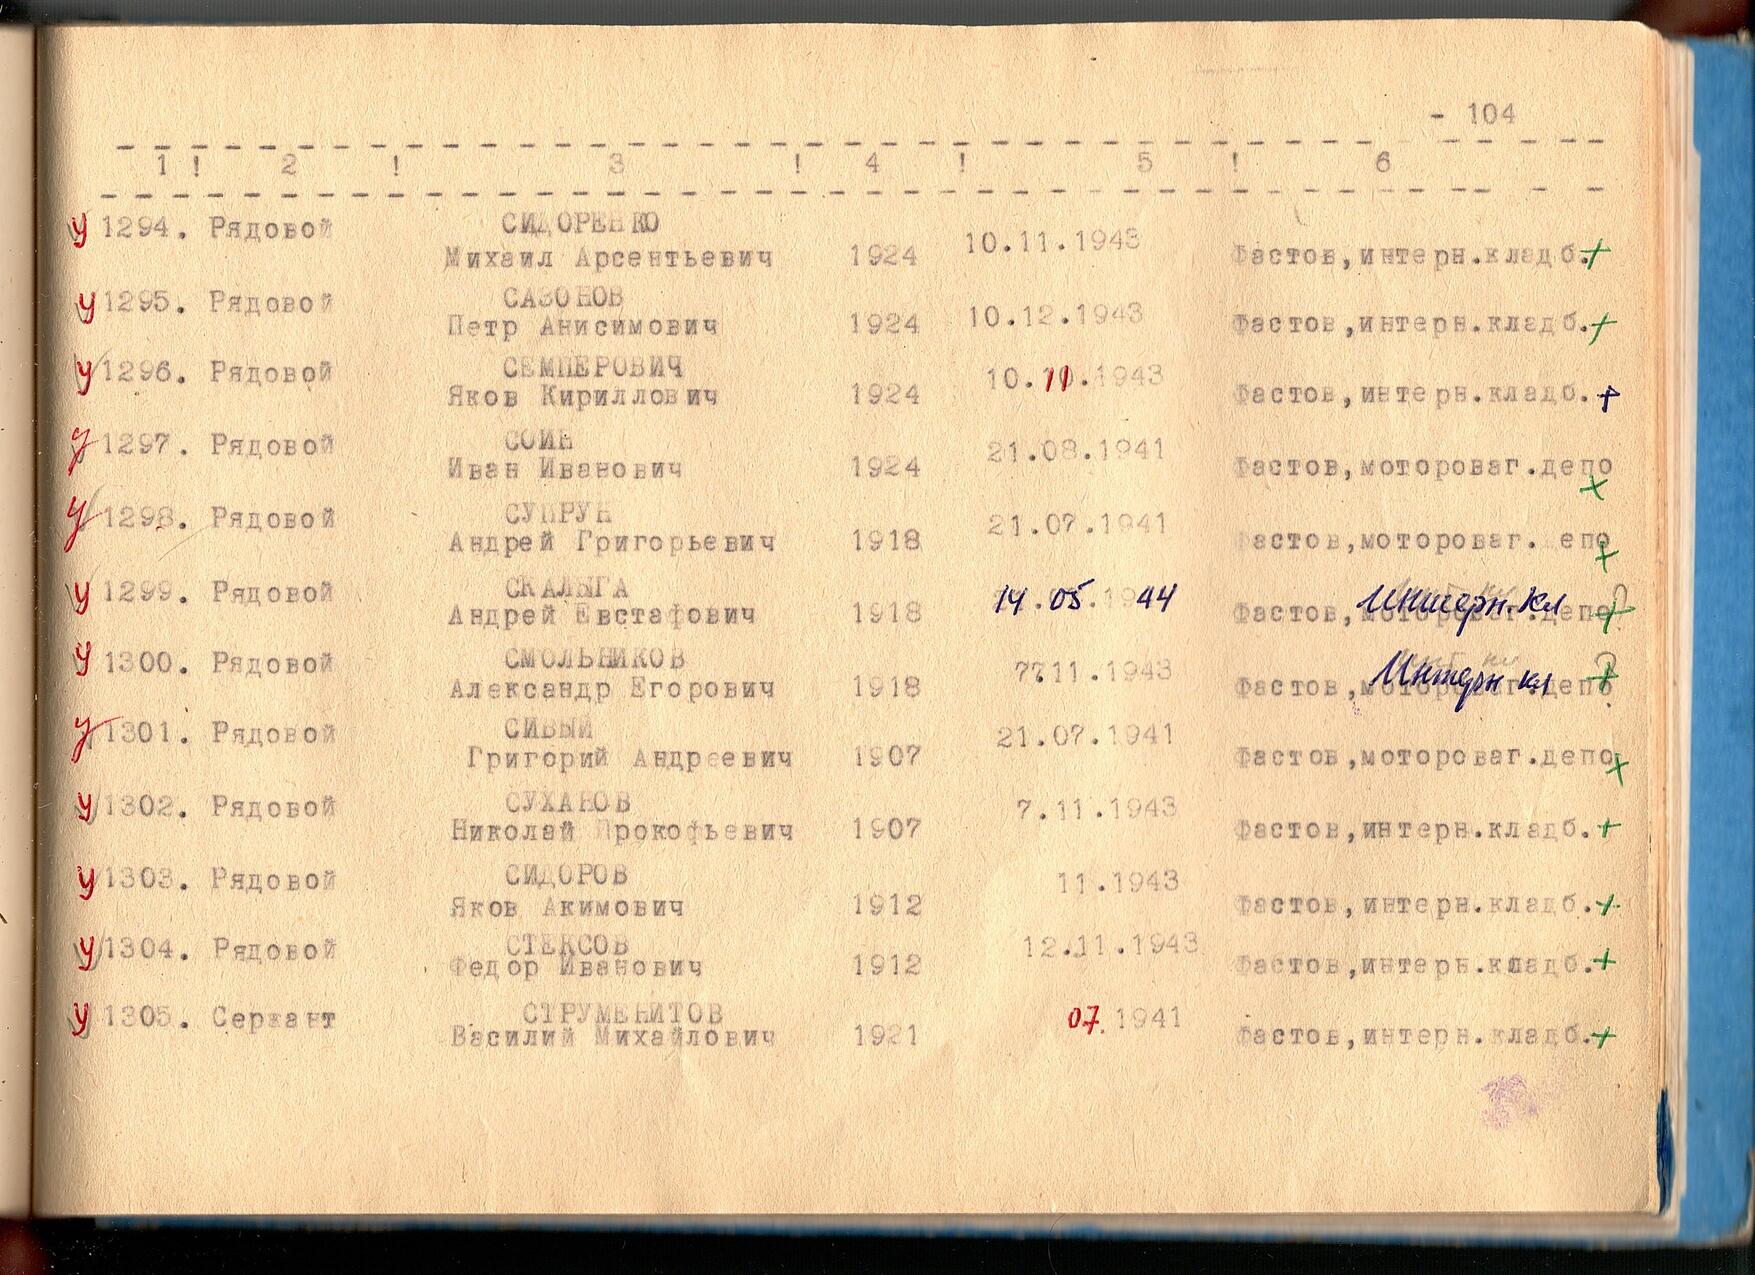 - 104
1 ! 2 ! 3 ! 4 ! 5 ! 6
у 1294. Рядовой СИДОРЕНКО
Михаил Арсентьевич 1924 10.11.1943 Фастов,интерн.кладб.+
у 1295. Рядовой САЗОНОВ
Петр Анисимович 1924 10.12.1943 Фастов,интерн.кладб.+
у 1296. Рядовой СЕМПЕРОВИЧ
Яков Кириллович 1924 10.11.1943 Фастов,интерн.кладб.+
у 1297. Рядовой СОИН
Иван Иванович 1924 21.08.1941 Фастов,мотороваг.депо
+
у 1298. Рядовой СУПРУН
Андрей Григорьевич 1918 21.07.1941 Фастов,мотороваг. епо
+
у 1299. Рядовой СКАЛЫГА
Андрей Евстафович 1918 14.05.1944 Фастов, Интерн.кл +
у 1300. Рядовой СМОЛЬНИКОВ
Александр Егорович 1918 7711.1943 Фастов, Интерн кл +
у 1301. Рядовой СИВЫЙ
Григорий Андреевич 1907 21.07.1941 Фастов,мотороваг.депо +
у 1302. Рядовой СУХАНОВ
Николай Прокофьевич 1907 7.11.1943 Фастов,интерн.кладб.+
у 1303. Рядовой СИДОРОВ
Яков Акимович 1912 11.1943 Фастов,интерн.кладб.+
у 1304. Рядовой СТЕКСОВ
Федор Иванович 1912 12.11.1943 Фастов,интерн.кладб.+
у 1305. Сержант СТРУМЕНИТОВ
Василий Михайлович 1921 07.1941 Фастов,интерн.кладб.+